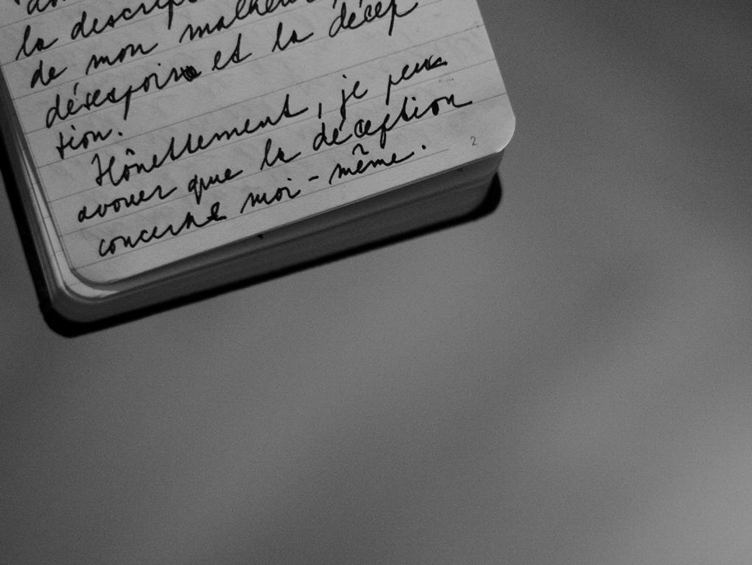 la descrip
de mon malheur
désespoir et la décep
tion.
Hônettement, je peux
avouer que la déception
concerne moi-même.
2